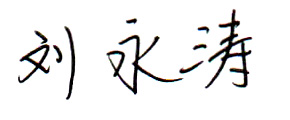 刘永涛